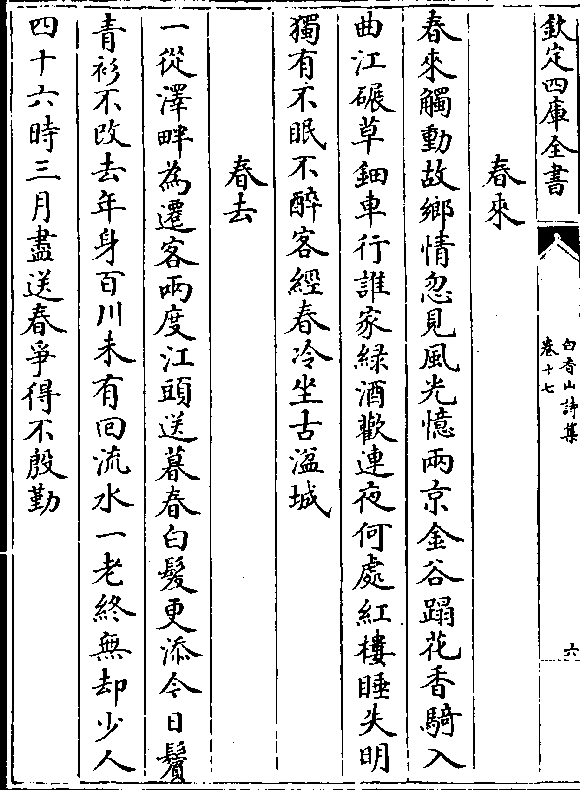 欽定四庫全書
白香山詩集
卷十七
六
春來
春來觸動故鄉情忽見風光憶兩京金谷蹋花香騎入
曲江碾草鈿車行誰家綠酒歡連夜何處紅樓睡失明
獨有不眠不醉客經春冷坐古湓城
春去
一從澤畔為遷客兩度江頭送暮春白髮更添今日鬢
青衫不改去年身百川未有回流水一老終無却少人
四十六時三月盡送春爭得不殷勤